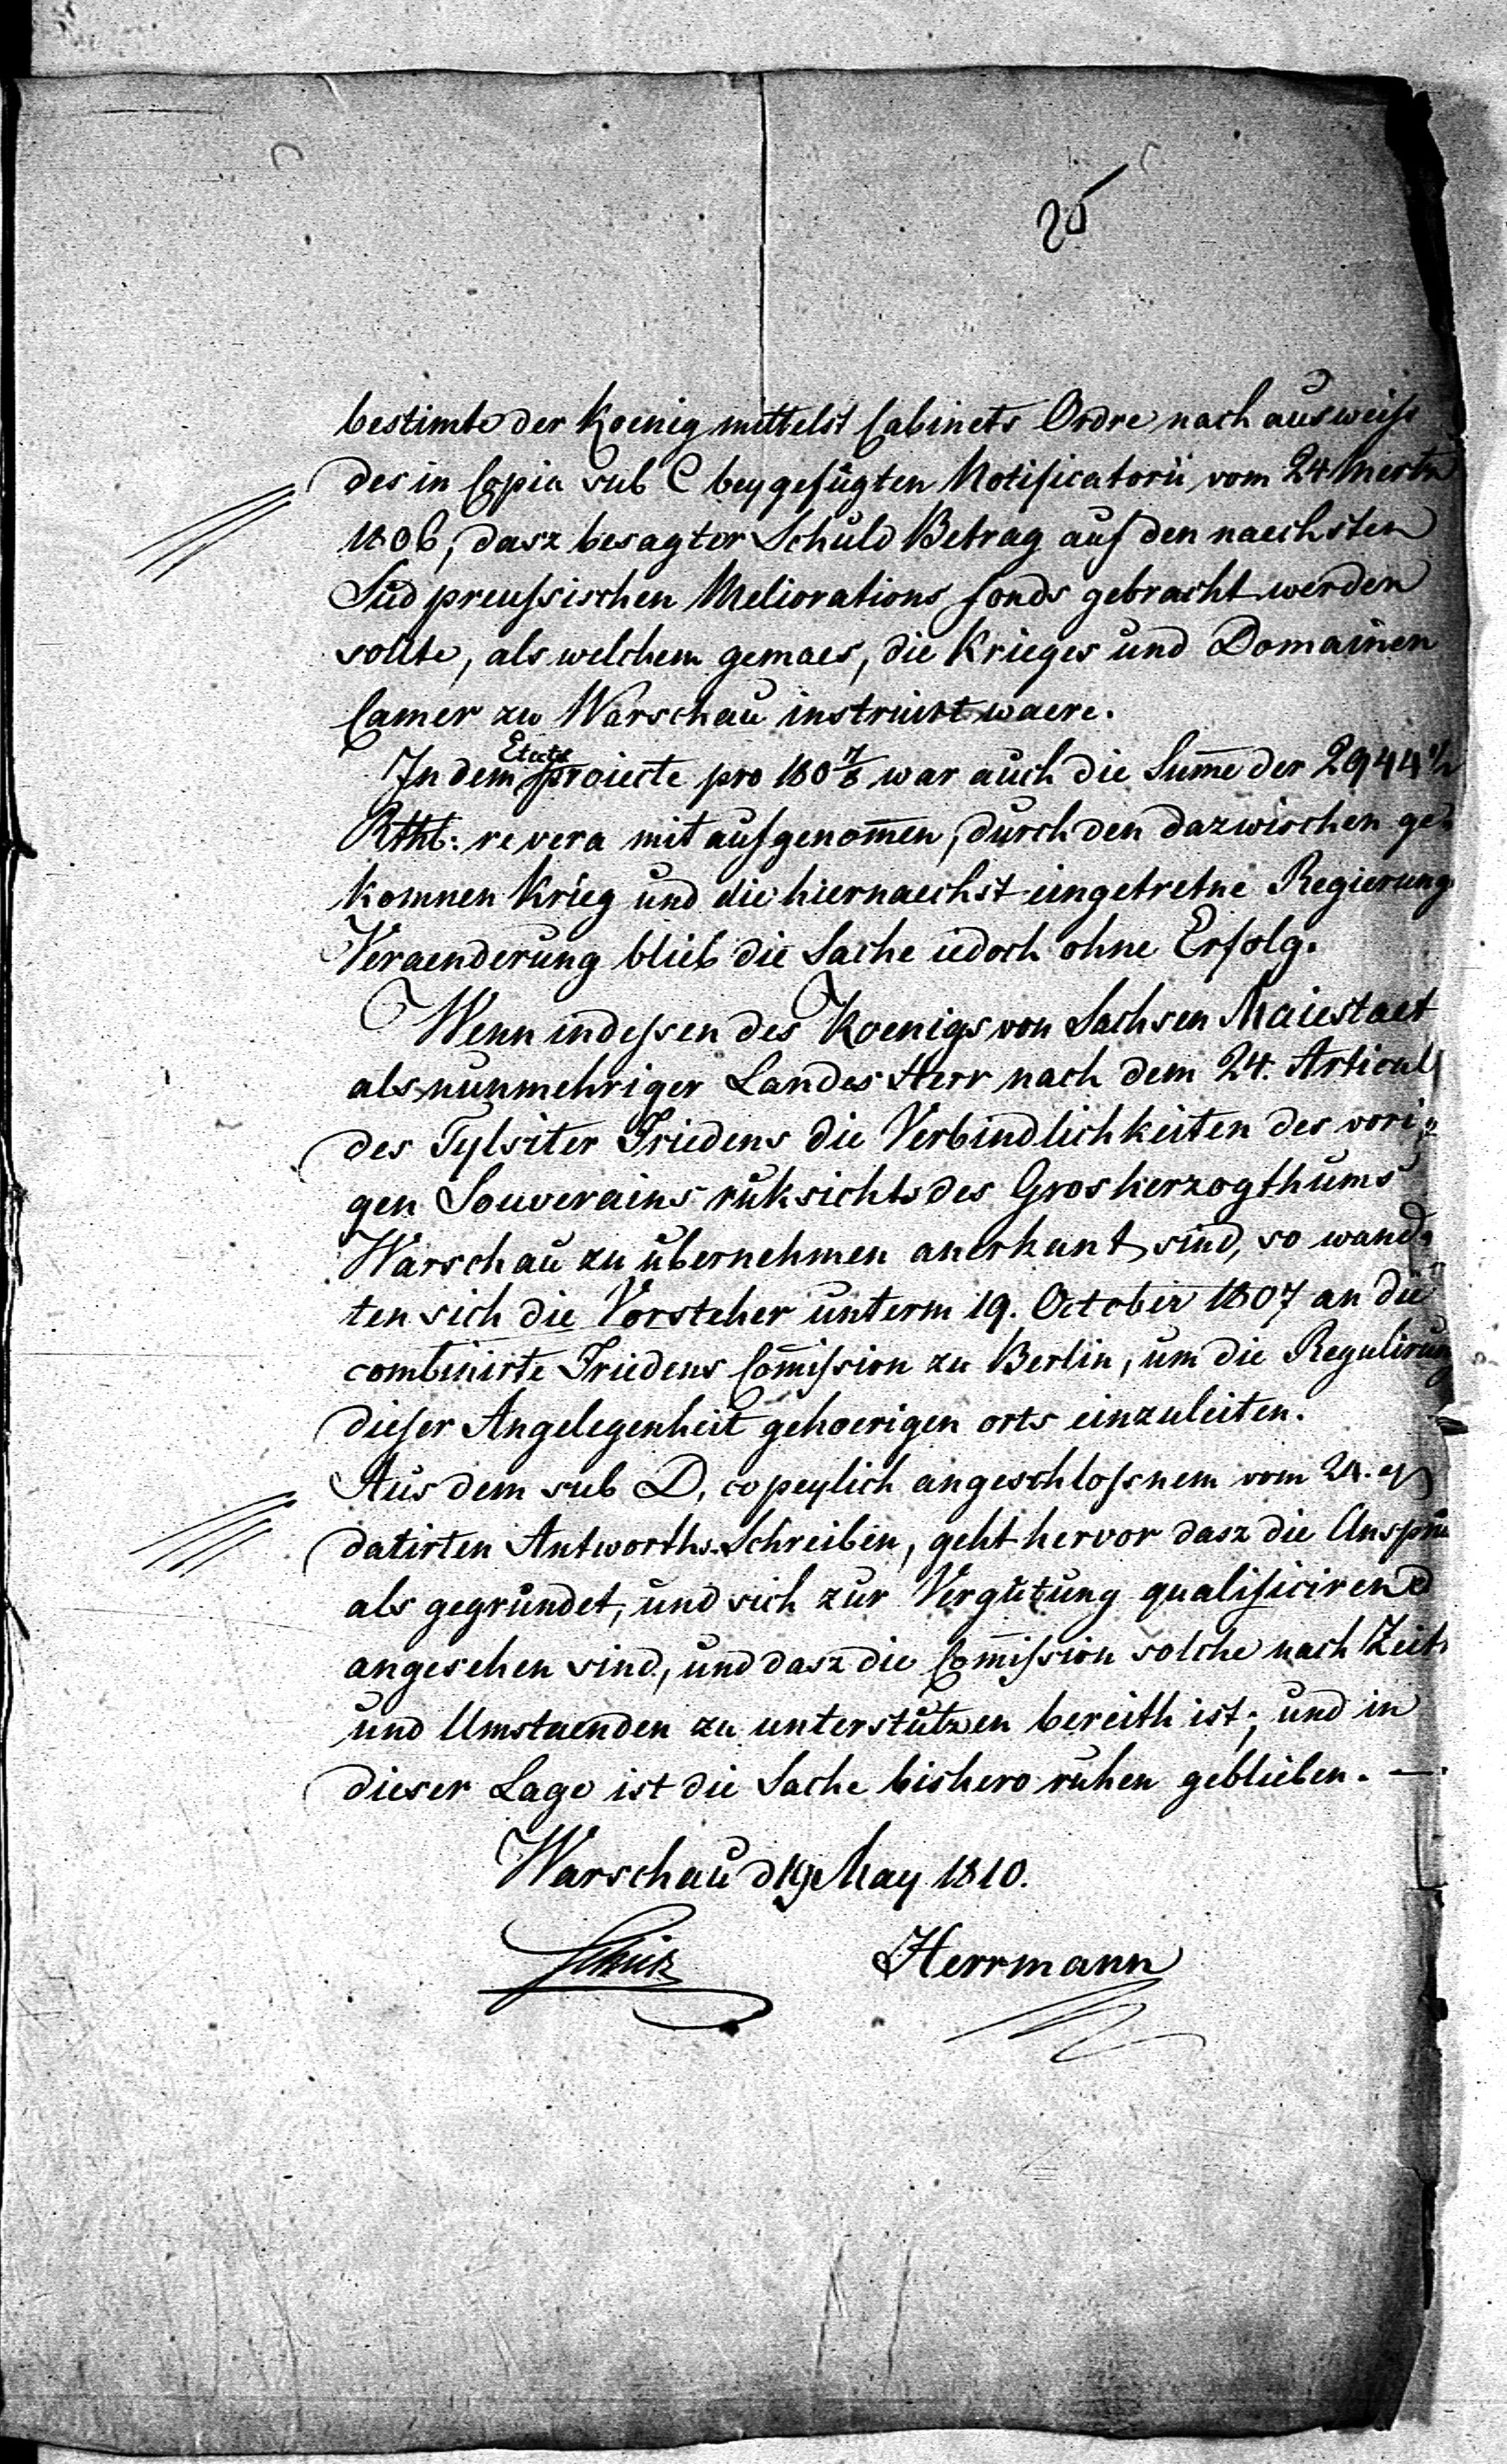 25
bestimte der Koenig mittelst Cabinets Ordre nach ausweiss
des in Copia sub C beygefügten Notificatorii vom 24 Mertz
1806, dasz besagter Schuld Betrag auf den naechsten
Südpreussischen Meliorations fonds gebracht werden
sollte, als welchem gemaes, die Krieges und Domainen
Camer zu Warschau instruirt waere.
In dem Etats proiecte pro 180 7/8 war auch die Sum̅e der 2944 1/2
Rthl: re vera mit aufgenom̅en, durch den dazwischen ge-
komnen Krieg und die hiernaechst eingetretne Regierungs
Veraenderung blieb die Sache iedoch ohne Erfolg.
Wenn indessen des Koenigs von Sachsen Maiestaet
als nunmehriger Landes Herr nach dem 24. Articul
des Tylsiter Friedens die Verbindlichkeiten des vori-
gen Souverains ruksichts des Grosherzogthums
Warschau zu übernehmen anerkant sind, so wand-
ten sich die Vorsteher unterm 19. October 1807 an die
combinirte Friedens Com̅ission zu Berlin, um die Regulirung
dieser Angelegenheit gehoerigen orts einzuleiten.
Aus dem sub D, copeylich angeschlossnem vom 24.
datirten Antworths-Schreiben, geht hervor dasz die
als gegründet, und sich zur Vergütung qualificirend
angesehen sind, und dasz die Com̅ission solche nach Zeit
und Umstaenden zu unterstützen bereith ist; und in
dieser Lage ist die Sache bishero ruhen geblieben. —
Warschau d 19 May 1810.
Schütz Herrmann